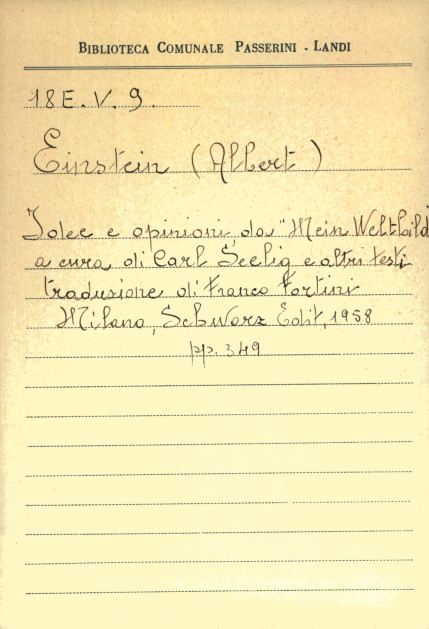 BIBLIOTECA COMUNALE PASSERINI - LANDI
18 E. V. 9.
Einstein (Albert)
Idee e opinioni, da "Mein Weltbild"
a cura di Carl Seelig e altri testi
traduzione di Franco Fortini
Milano, Schwarz Edit, 1958
pp. 349